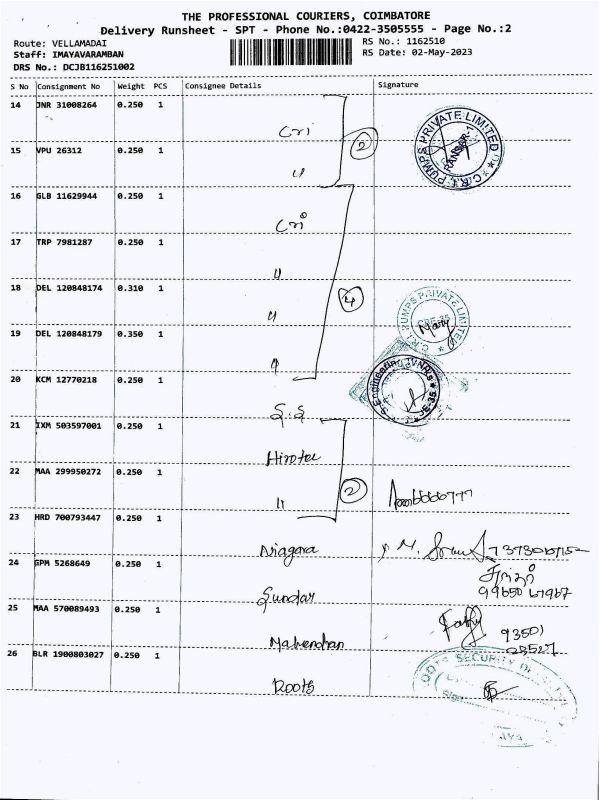 THE PROFESSIONAL COURIERS, COIMBATORE
Delivery Runsheet - SPT - Phone No.:0422-3505555 - Page No.:2
Route: VELLAMADAI
RS No.: 1162510
Staff: IMAYAVARAMBAN
RS Date: 02-May-2023
DRS No.: DCJB116251002
S No Consignment No Weight PCS Consignee Details Signature
14 JNR 31008264 0.250 1 Cri
15 VPU 26312 0.250 1 " 2
16 GLB 11629944 0.250 1 Cri
17 TRP 7981287 0.250 1 "
18 DEL 120848174 0.310 1 " 4
19 DEL 120848179 0.350 1 "
20 KCM 12770218 0.250 1 S.S
21 IXM 503597001 0.250 1 Hirotec
22 MAA 299950272 0.250 1 " 2
23 HRD 700793447 0.250 1 Niagara
24 GPM 5268649 0.250 1 Sundar
25 MAA 570089493 0.250 1 Mahendran
26 BLR 1900803027 0.250 1 Roots
C.R.I. PUMPS PRIVATE LIMITED
C.R.I. PUMPS PRIVATE LIMITED
ROOTS SECURITY